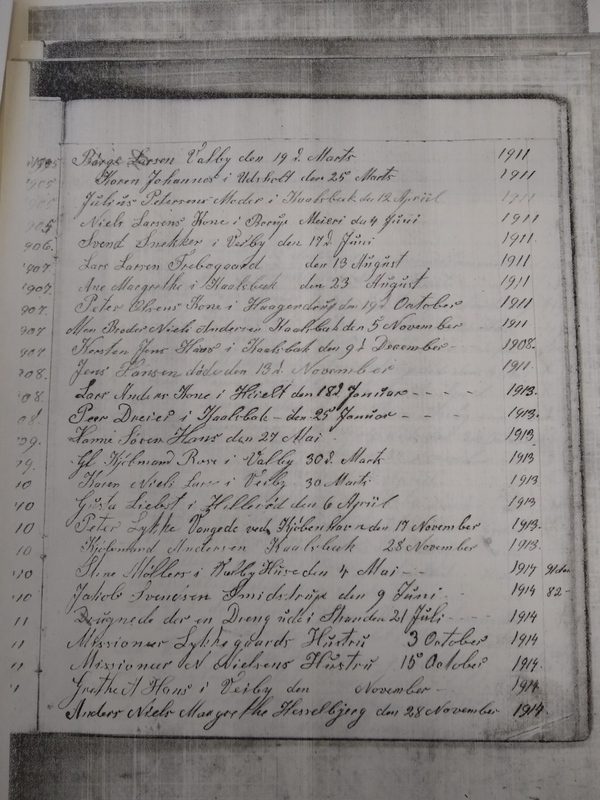 Börge Larsen Valby den 19 d. Marts 1911
Karen Johannes i Udsholt den 25 Marts 1911
Julius Petersens Moder i Kaalsbæk d. 12 Apriil 1911
905 Niels Larsens Kone i Meieri du 4 Juni 1911
906. Svend Snekker i Veiby den 17 d Juni 1911.
907 Lars Larsen Trebogaard den 13 August 1911
907. Ane Margrethe i Kaalsbæk den 23 August 1911
907. Peter Olsens Kone i Haagendrup den 19 d October 1911
907 Min Broder Niels Andersen Kaalsbak den 5 November 1911
907 Karsten Jens Hans i Kaalsbak den 9 d December 1908.
08. Jens Hansen döde den 13 d. November 1911.
08. Lars Anders Kone i den 18 d Januar - - - - 1913.
08. Peer Dreier i Kaalsbak - den 25 Januar - - - - 1913.
09. Hanne Sören Hans den 27 Mai 1913
9. Gl Kjöbmand Rose i Valby 30 d. Marts 1913
10 Karen Niels Lars i Veiby 30 Marts 1913
10 Gusta Liebst i Hilleröd den 6 Apriil 1913
10 Peter Lykke Vangede ved Kjöbenhavn den 17 November 1913.
10 Kjöbmand Andersen Kaalsbæk 28 November 1913.
10 Stine Möllers i Huse den 4 Mai - - 1914
10 Jakob Svendsen Smidstrup den 9 Juni - 1914 82 -
11 Drugnede der en Dreng ude i Stranden 21 Juli - - - 1914
11 Missionær Lykkegaards Hustru 3 October 1914
11 Missionær N Nielsens Hustru 15 October 1914.
11 Hans i Veiby den November - 1914
Anders Niels Margrethe Hesselbjerg den 28 November 1914.